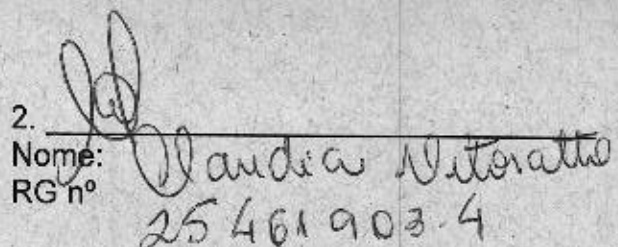 2.
Nome: Claudia Vitoratto
RG nº 25 461 903-4